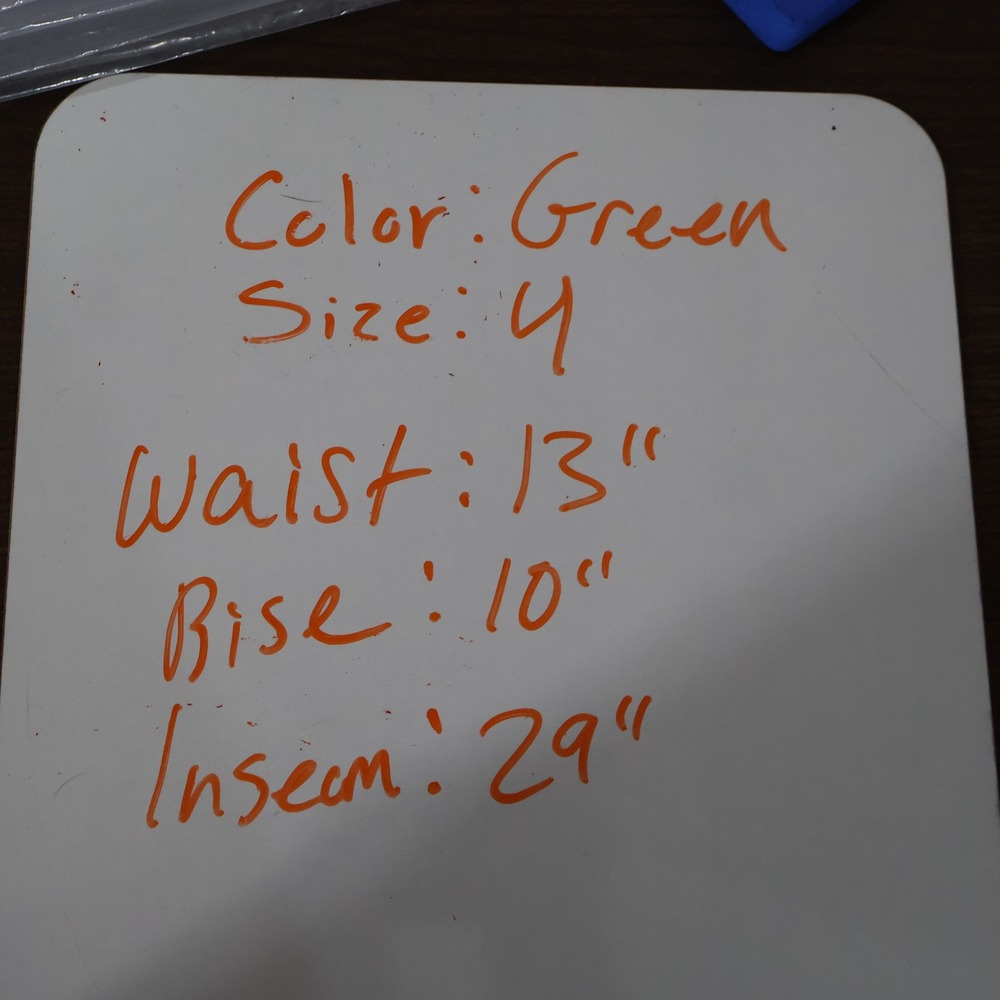 Color: Green
Size: 4
Waist: 13"
Rise: 10"
Inseam: 29"